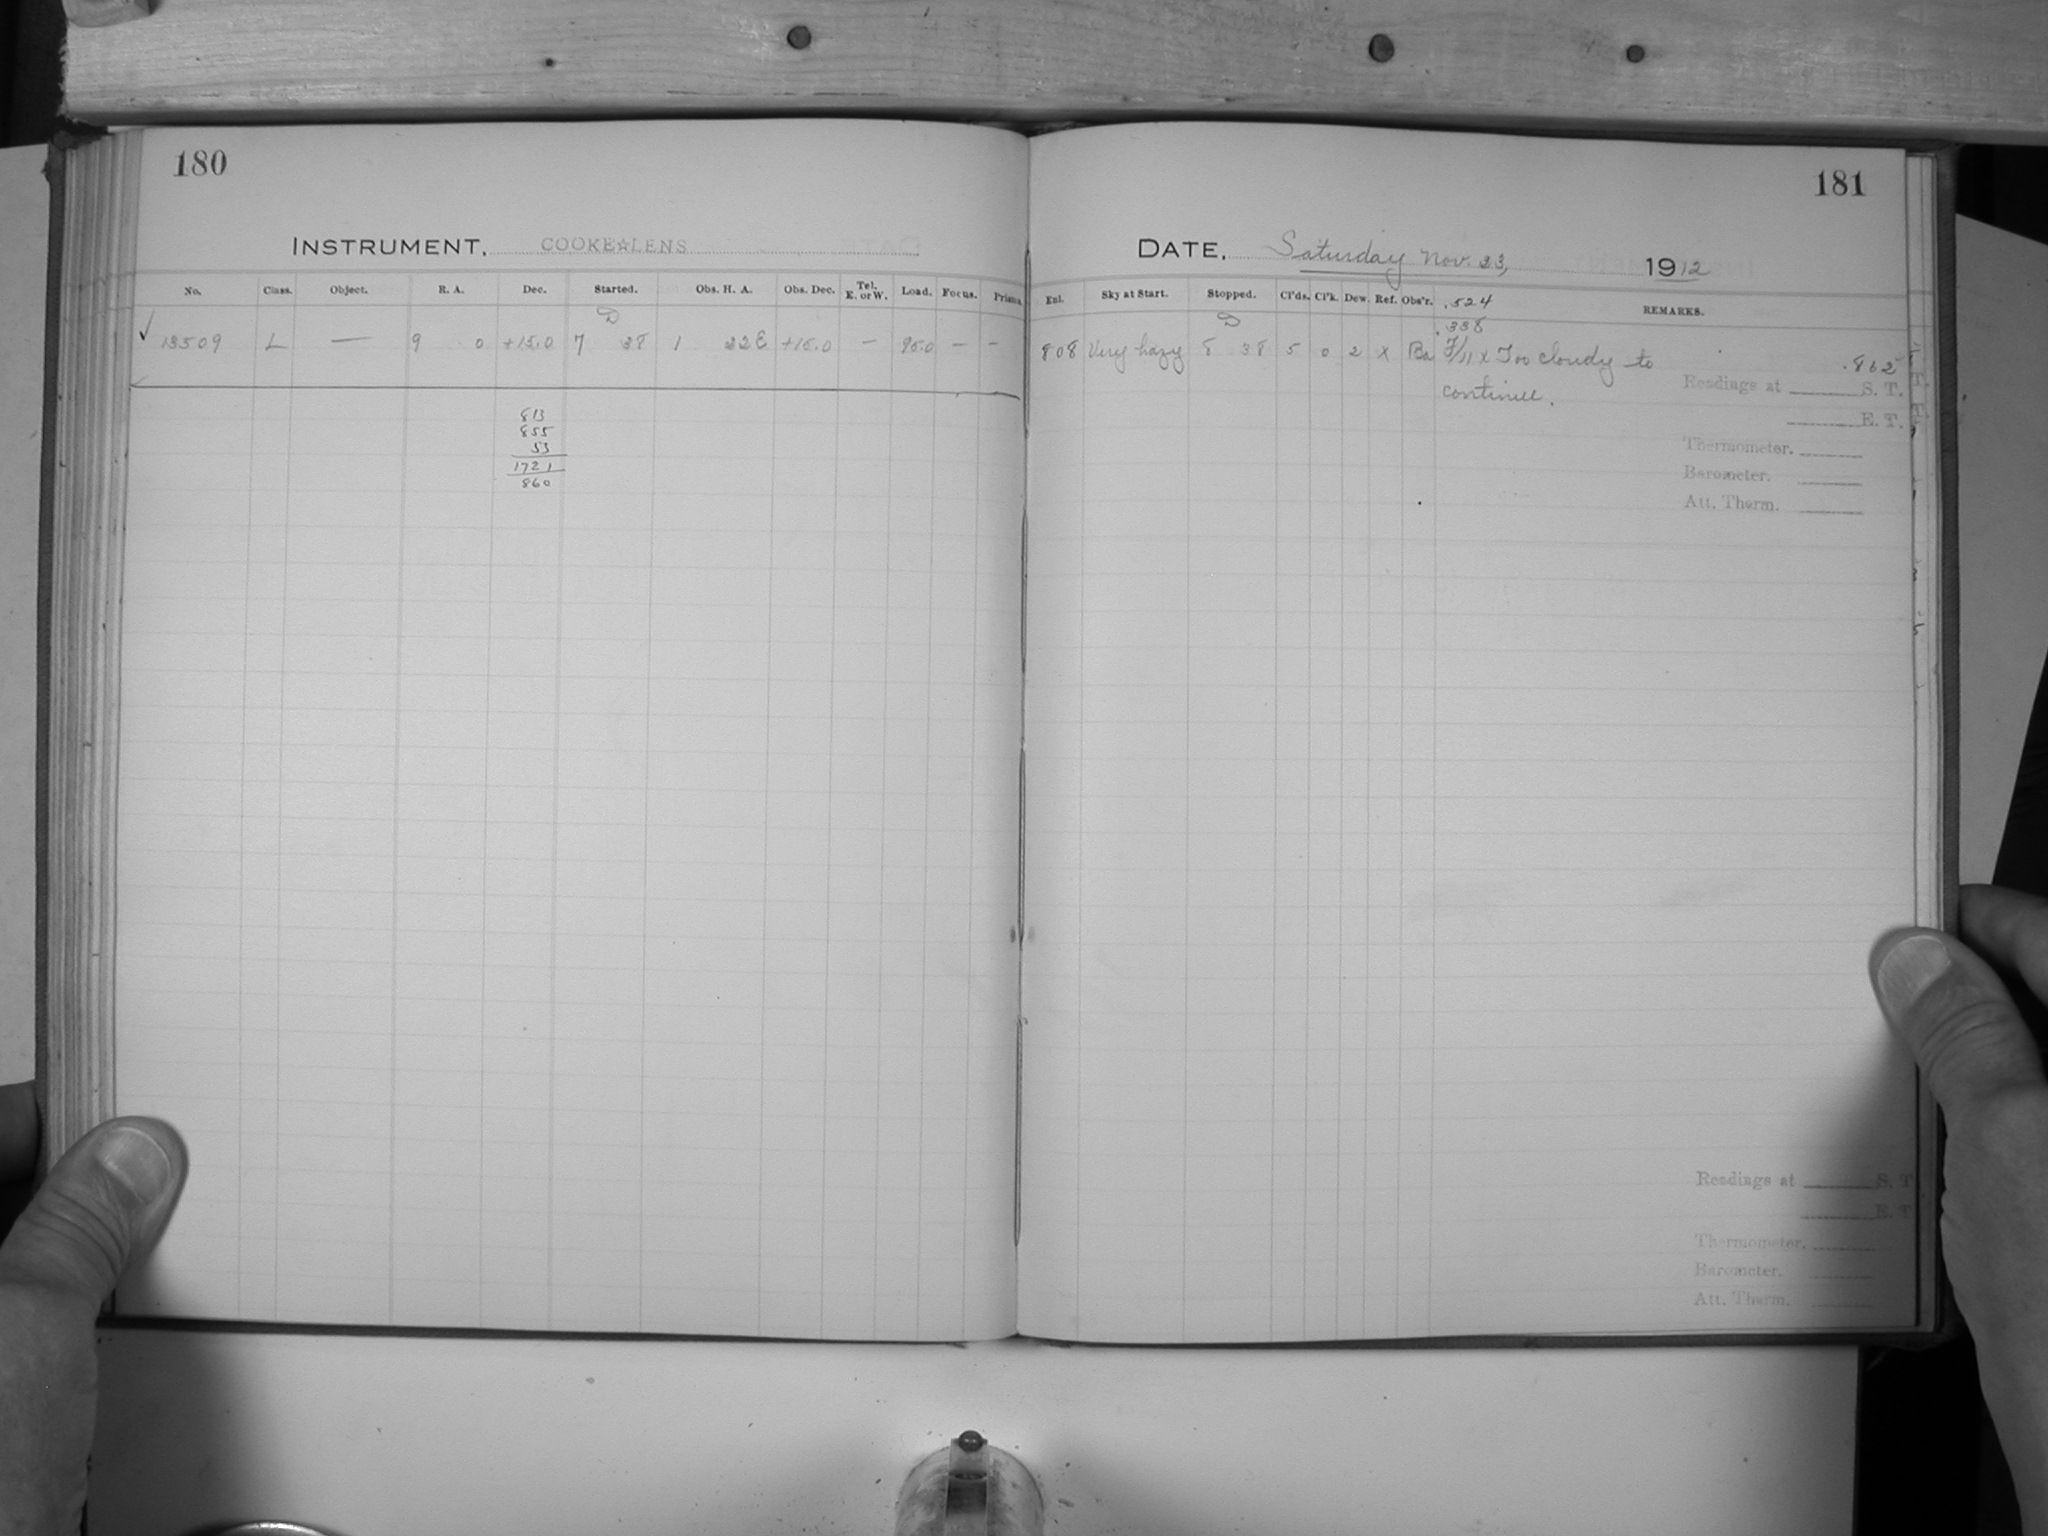 180
INSTRUMENT, COOKE☆LENS
No. Class. Object. R. A. Dec. Started. Obs. H. A. Obs. Dec. Tel. E. or W. Load. Focus. Prisms
D
✓ 13509 L — 9 0 +15.0 7 38 1 22 E +15.0 — 95.0 — —
813
855
53
1721
860
181
DATE, Saturday Nov. 23, 1912
Enl. Sky at Start. Stopped. Cl'ds. Cl'k. Dew. Ref. Obs'r. .524 REMARKS.
D .338
808 Very hazy 8 38 5 0 2 x Ba F/11 x Too cloudy to .862
continue.
Readings at S. T.
E. T.
Thermometer.
Barometer.
Att. Therm.
Readings at S. T
E. T
Thermometer.
Barometer.
Att. Therm.